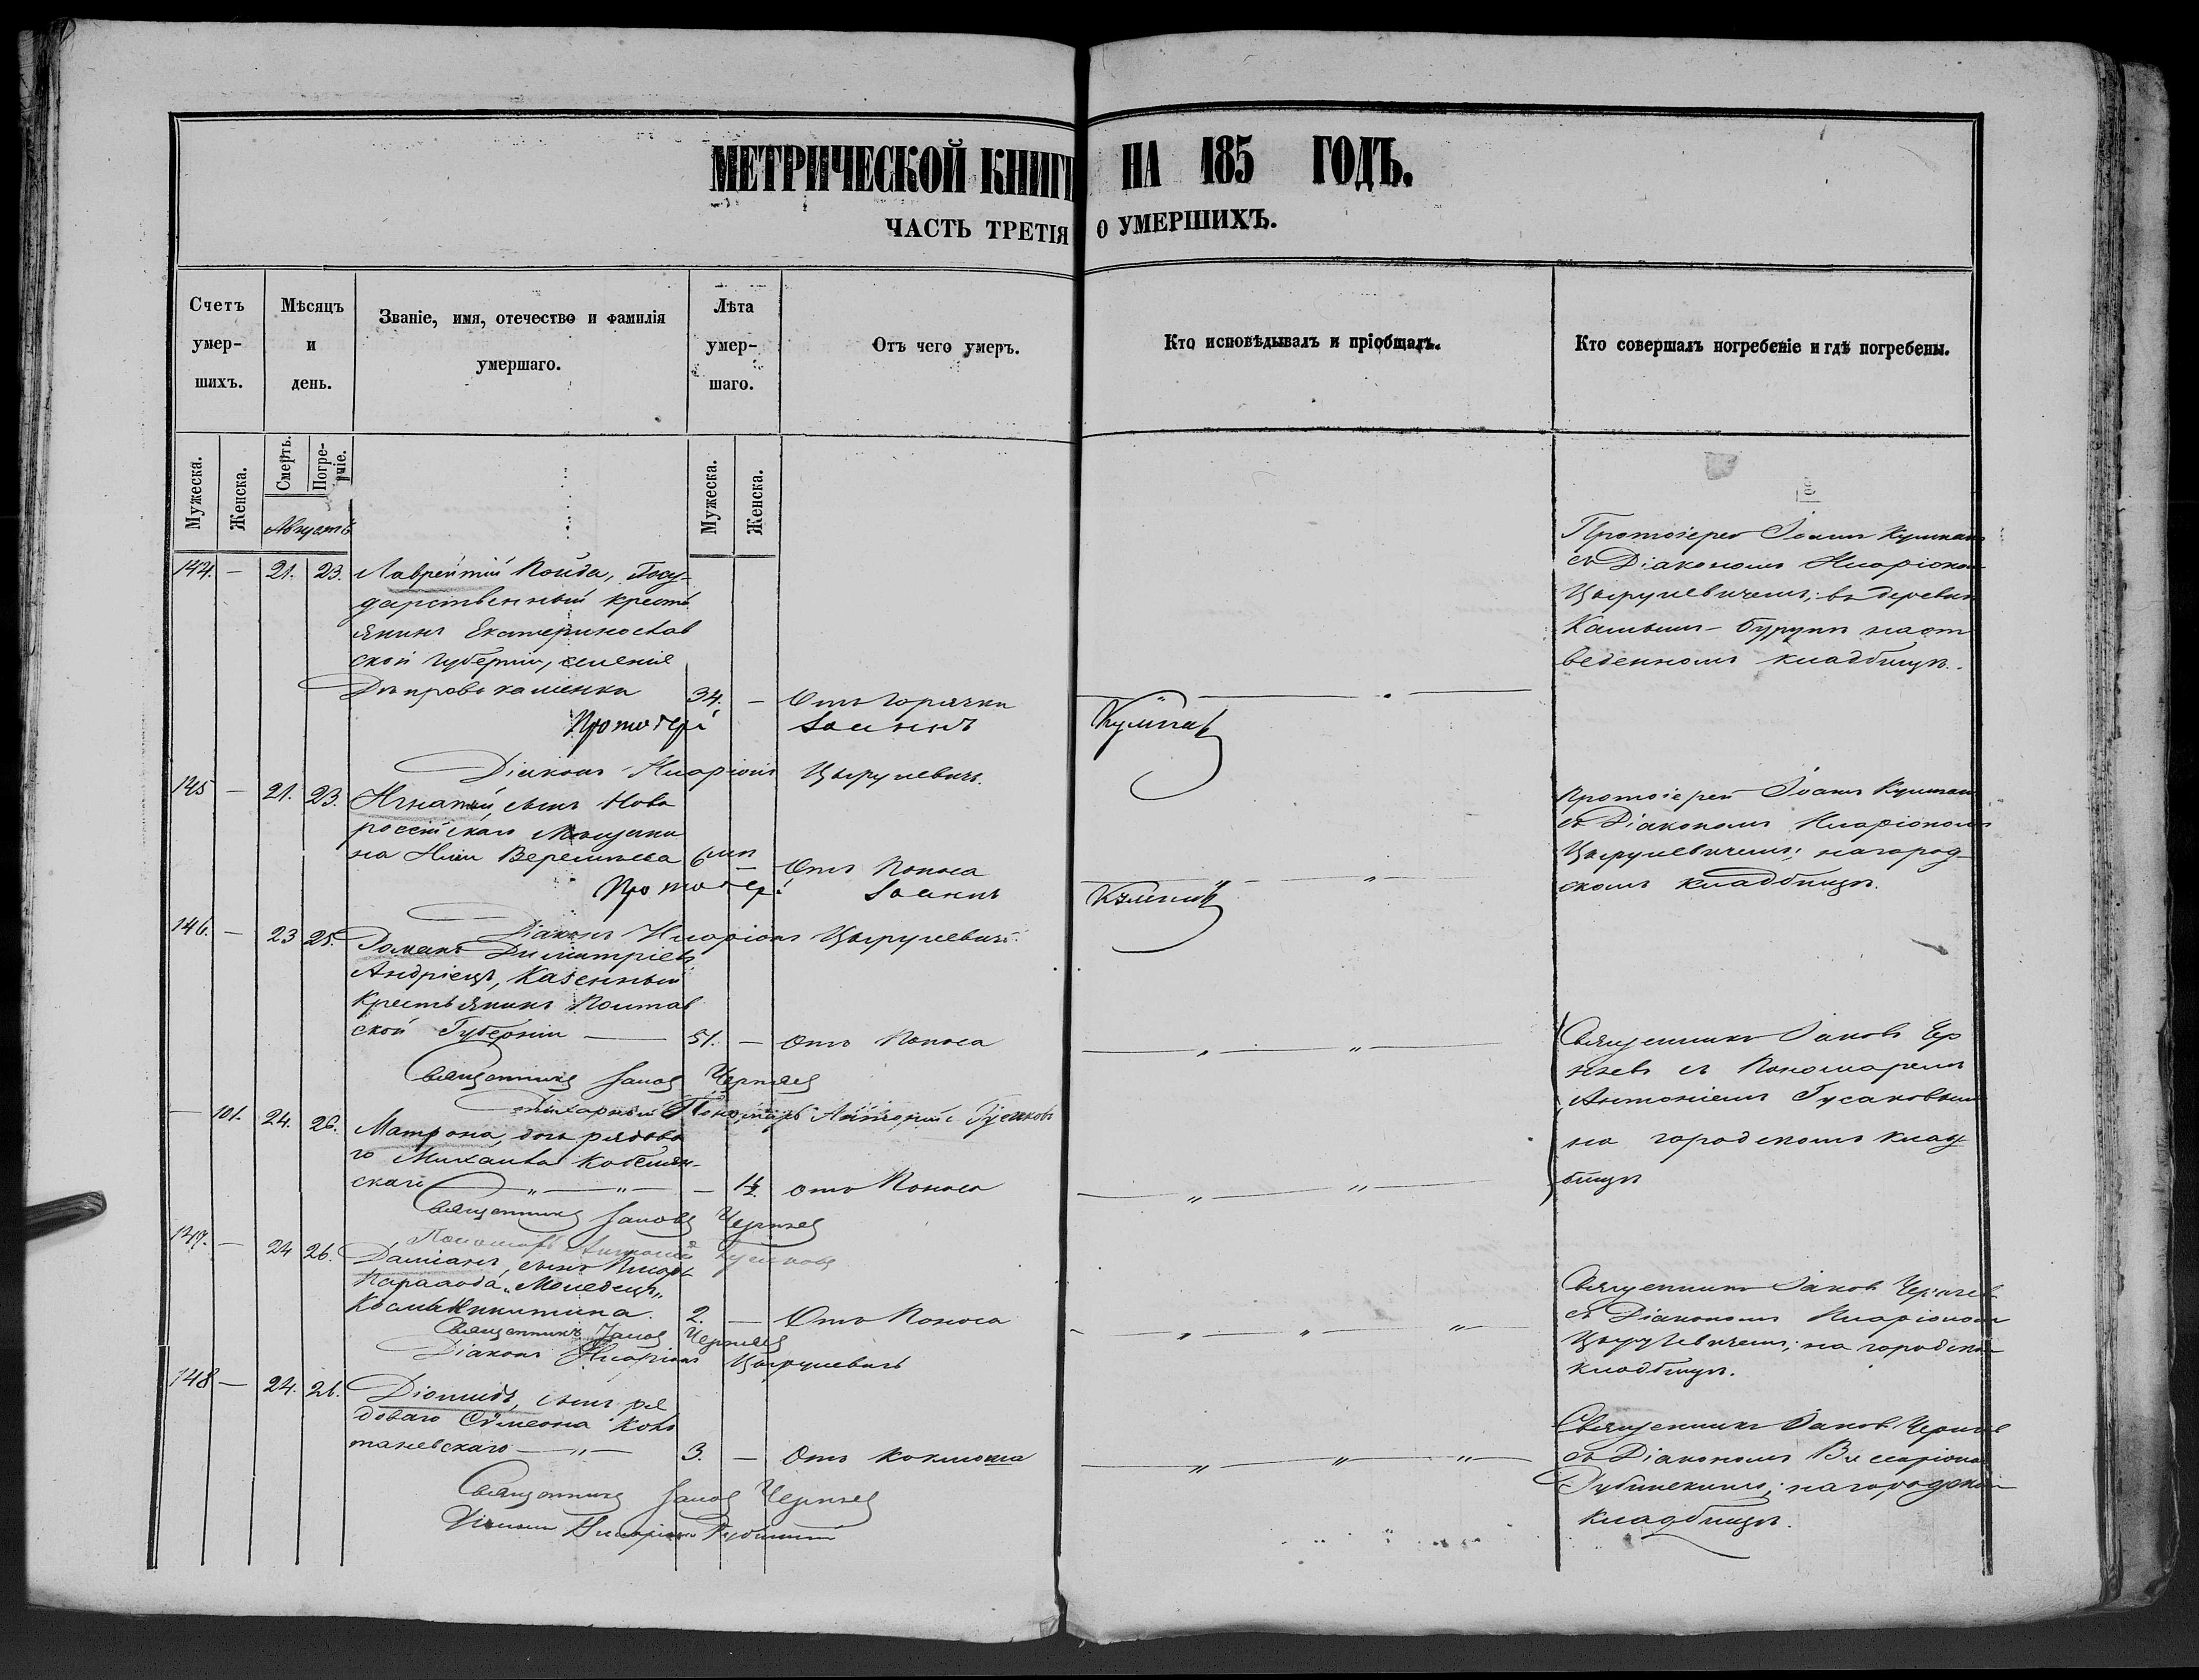 МЕТРИЧЕСКОЙ КНИГИ НА 185 ГОДЪ.
ЧАСТЬ ТРЕТІЯ О УМЕРШИХЪ.
Счетъ умер-шихъ.
Мѣсяцъ и день.
Званіе, имя, отечество и фамилія умершаго.
Лѣта умер-шаго.
Отъ чего умеръ.
Кто исповѣдывалъ и пріобщалъ.
Кто совершалъ погребеніе и гдѣ погребены.
Мужеска. Женска. Смерть. Погре- Мужеска. Женска.
Августъ
144. — 21. 23. Лаврентій Койда, Госу-
дарственный кресть
янинъ Екатеринослав
ской губерніи, селенія
Днѣпрово каменки 34. — Отъ горячки
Протоіерей Іоаннъ
съ Діакономъ Иларіоном
Цырулевичемъ; въ деревнѣ
Камышъ-Бурунъ наот
веденномъ кладбищѣ.
Протоіерй Іоаннъ
Діаконъ Иларіонъ Цырулевичъ.
145 — 21. 23. Игнатій, сынъ Ново
россійскаго Мѣщани
на Веремѣева 6 Отъ Поноса
Протоіерей Іоаннъ
съ Діакономъ Иларіономъ
Цырулевичемъ; нагород-
скомъ кладбищѣ.
Протоіер Іоаннъ
Діаконъ Иларіонъ Цырулевичъ.
146. — 23 25. Романъ Димитріевъ
Андріецъ, Казенный
Крестьянинъ Полтав
ской Губерніи — 51. — Отъ Поноса
Священникъ Іаковъ Чер
няев съ Пономаремъ
Антоніемъ Гусаковым
на городскомъ клад
бищѣ
Священникъ Іаковъ Черняев
Стихарный Пономарь Антоній Гусаковъ
— 101. 24. 26. Матрона, дочь рядова
го Михаила Кобелян-
скаго — отъ Поноса
Священникъ Іаковъ Черняев
Пономарь Антоній Гусаковъ
147. — 24 26. Даміанъ, сынъ
Парахода „Молодецъ„
Космы Никитина. 2. — Отъ Поноса
Священникъ Іаковъ Черняев
съ Діакономъ Иларіономъ
Цырулевичемъ; на городском
кладбищѣ.
Священникъ Іаковъ Черняев
Діаконъ Иларіонъ Цырулевичъ
148 — 24. 26. Діомидъ, сынъ ря
доваго Сѵмеона Коно
тневскаго — 3. — Отъ коклюша
Священникъ Іаковъ Черняев
съ Діакономъ
нагородском
кладбищѣ.
Священникъ Іаковъ Черняев